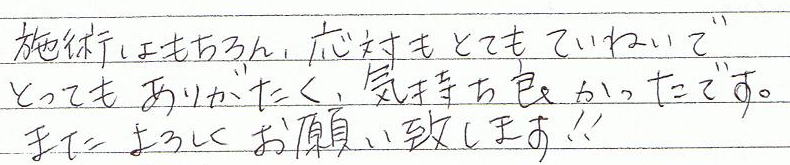 施術はもちろん、応対もとてもていねいで
とってもありがたく、気持ち良かったです。
またよろしくお願い致します!!